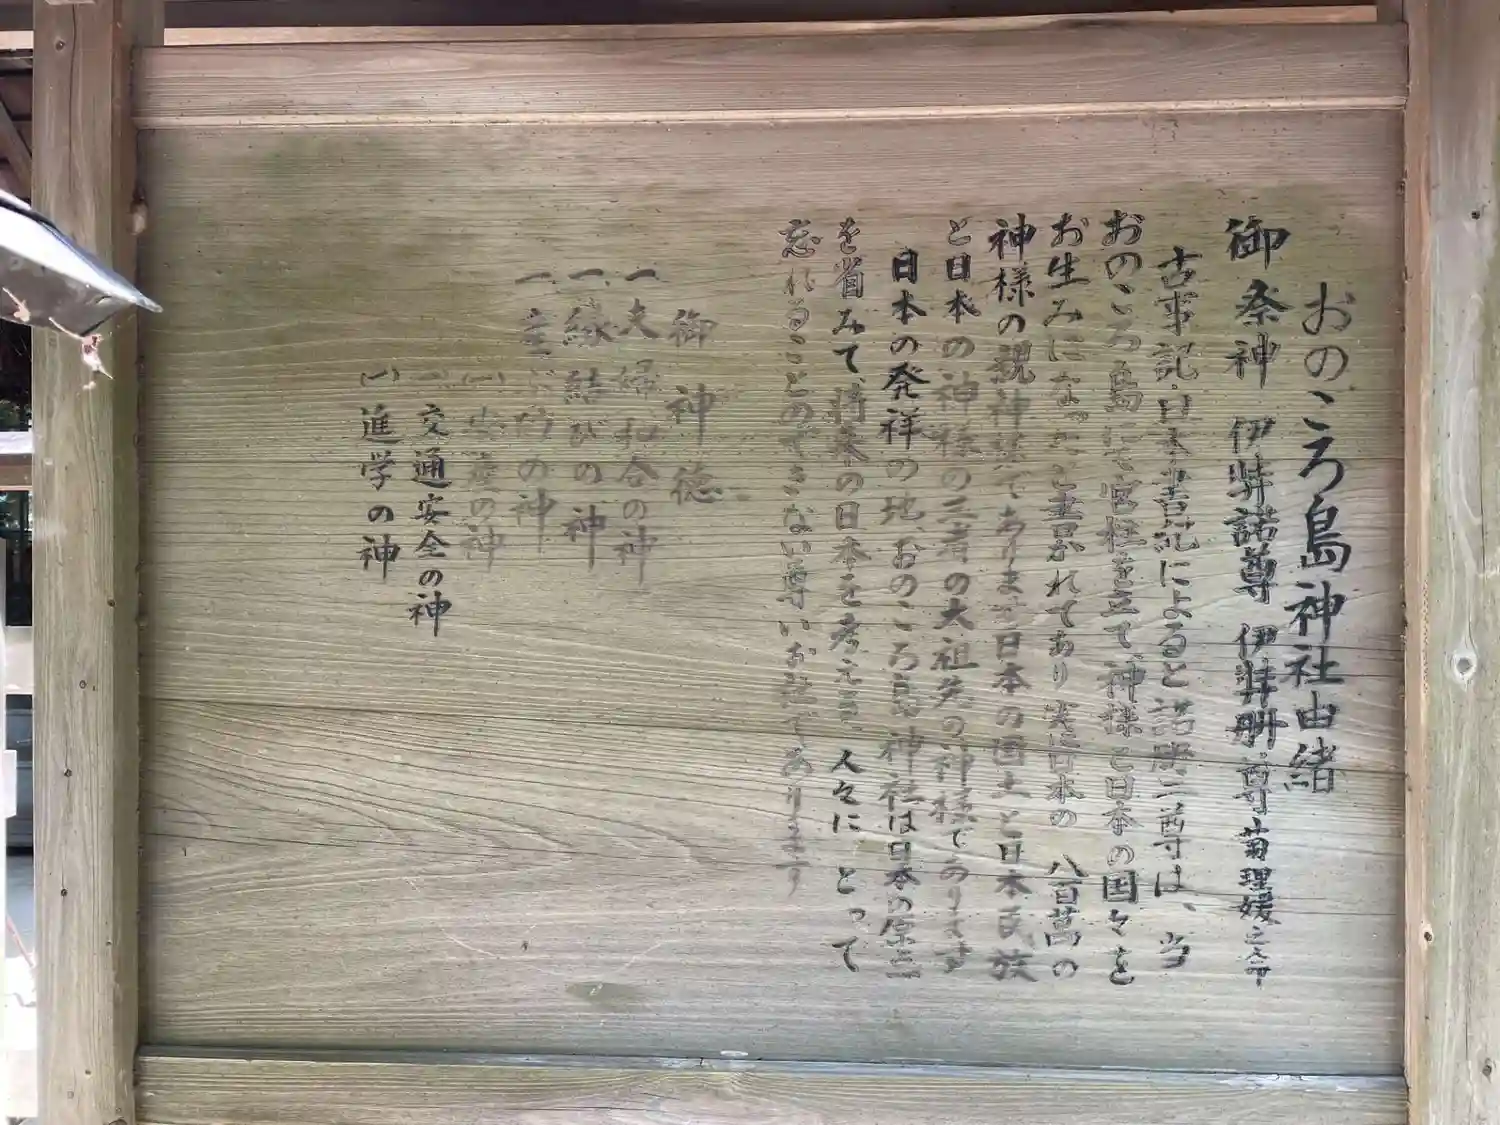 おのころ島神社由緒
御祭神 伊弉諾尊 伊弉冊尊 菊理媛之命
古事記・日本書記によると諾冊二尊は、当
おのころ島にて宮柱を立て、神様と日本の国々を
お生みになったと書かれてあり 実に日本の 八百萬の
神様の親神様であります 日本の国土と日本民族
と日本の神様の三者の大祖先の神様であります
日本の発祥の地、おのころ島神社は日本の原点
を省みて、将来の日本を考える、人々にとって
忘れることのできない尊いお社であります
御神徳
一、夫婦和合の神
一、縁結びの神
一、の神
(一)安産の神
交通安全の神
(一)進学の神